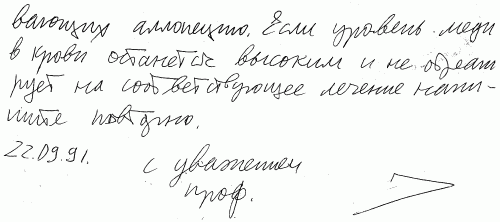 вающих аллопецию. Если уровень меди
в крови останется высоким и не
рует на соответствующее лечение напи-
шите повторно.
22.09.91.
с уважением
проф.